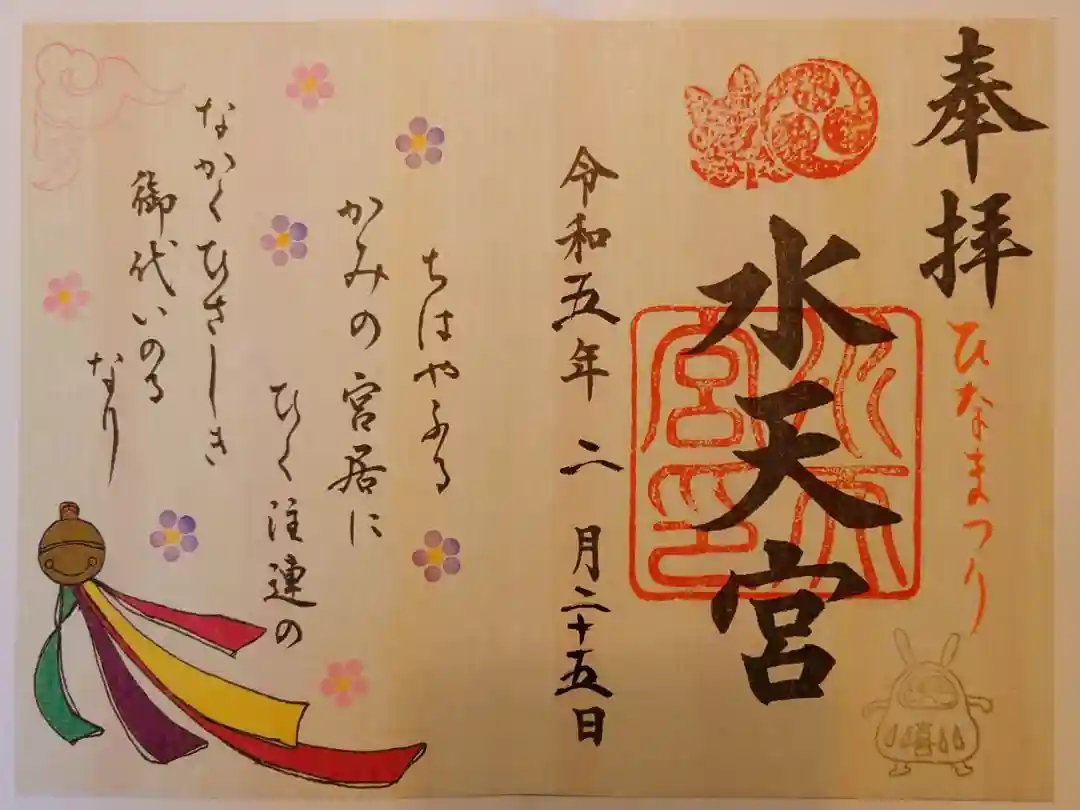 奉拝
ひなまつり
水天宮
水天宮印
令和五年 二月二十五日
ちはやふる
かみの宮居に
ひく注連の
なかくひさしき
御代いのる
なり